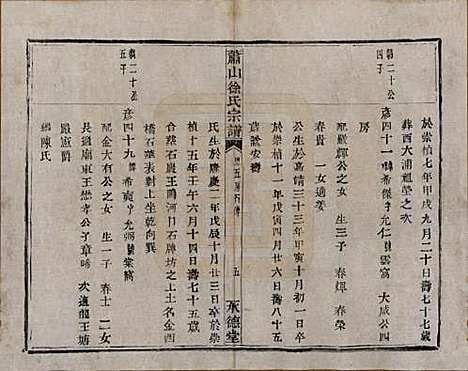 朝二十公
四子
於崇禎七年甲戌九月二十日壽七十七歲
葬西大浦祖塋之次
彥四十一 希傑子允仁號雲窩 大威公四
房
配嚴輝公之女 生三子 春煇 春榮
春貴 一女適姜
公生於嘉靖三十三年甲寅十月初一日卒
於崇禎十一年戊寅四月廿六日壽八十五
歲 安橋
蕭山徐氏宗譜
五
永德堂
氏生於隆慶二年戊辰十月廿三日卒於崇
禎十五年壬午六月十四日壽七十五歲
合葬石嚴王 河口石牌坊之上土名金西
橋石莪表對上坐乾向巽
朝二十公
五子
彥四十九 希 子允弼號棠窩
配 氏公之女 生一子 春士 二女
長適廟東王懋孝公子章晞 次適龍王塘
嚴 爵
繼陳氏